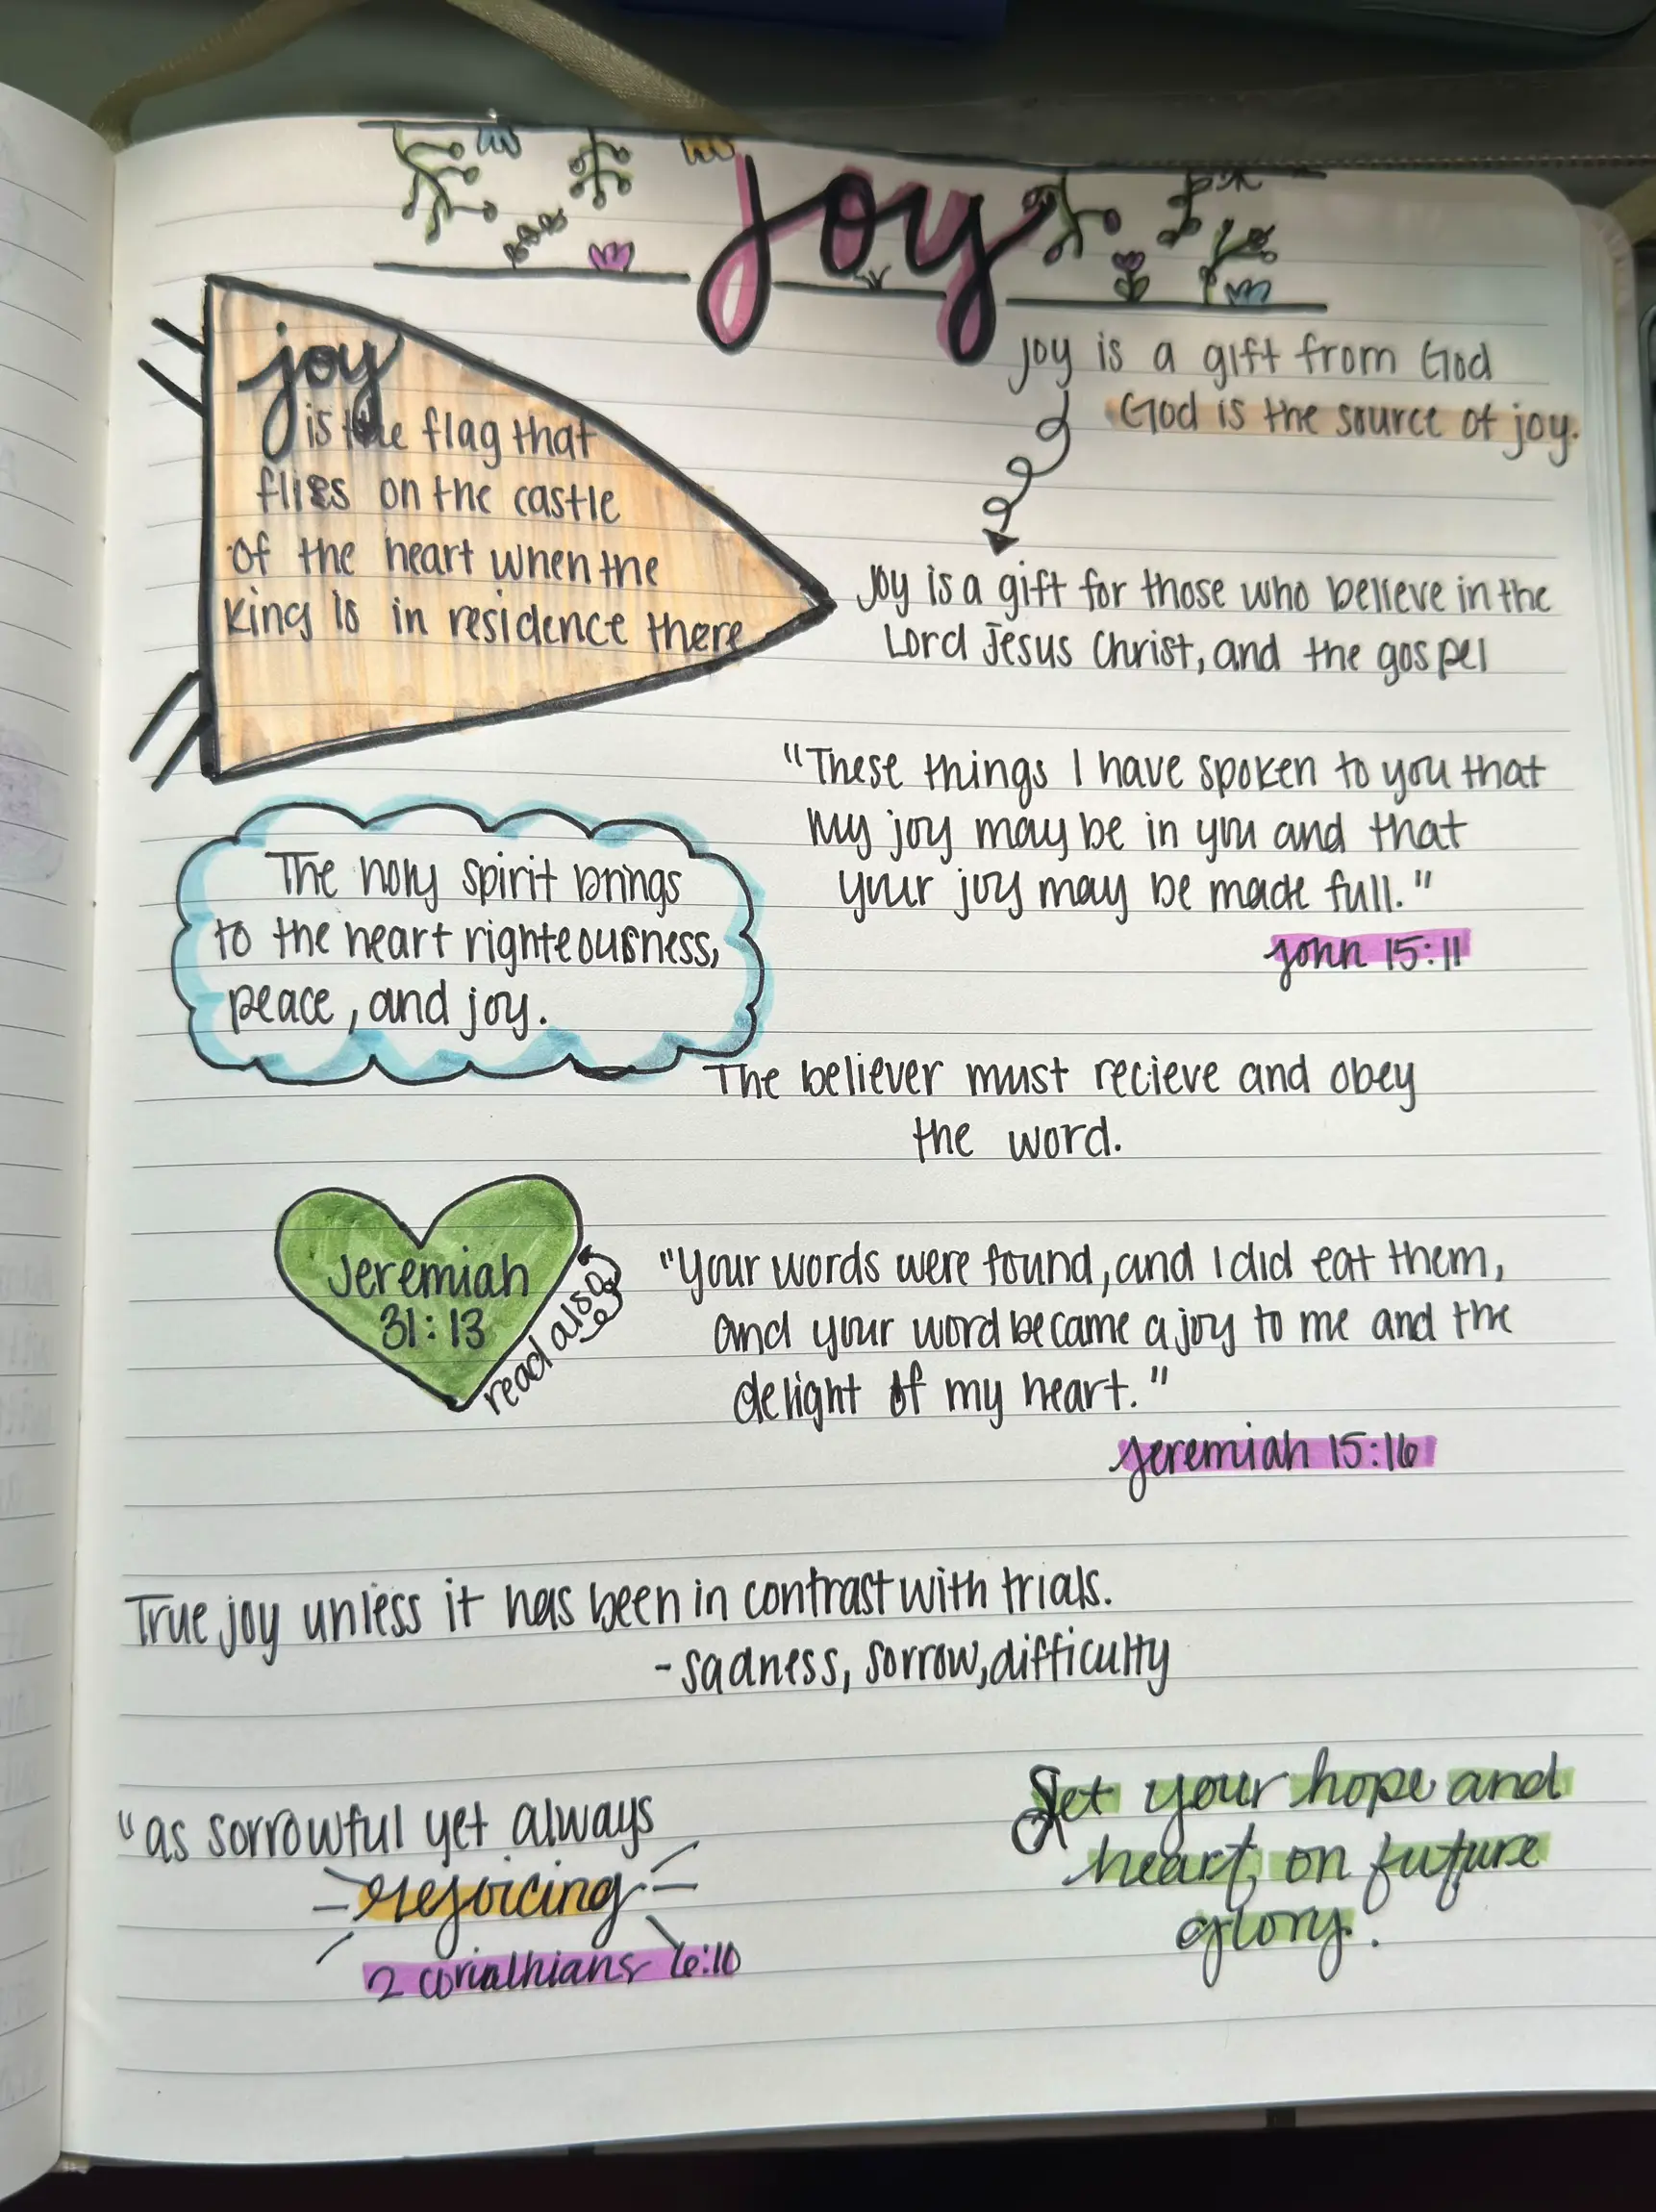 joy
joy is a gift from God
God is the source of joy.
joy
is the flag that
flies on the castle
of the heart when the
king is in residence there
Joy is a gift for those who believe in the
Lord Jesus Christ, and the gospel
"These things I have spoken to you that
my joy may be in you and that
your joy may be made full."
john 15:11
The holy spirit brings
to the heart righteousness,
peace, and joy.
The believer must recieve and obey
the word.
Jeremiah
31:13
read also
"Your words were found, and I did eat them,
and your word became a joy to me and the
delight of my heart."
jeremiah 15:16
True joy unless it has been in contrast with trials.
- sadness, sorrow, difficulty
"as sorrowful yet always
rejoicing
2 corinthians 6:10
Set your hope and
heart on future
glory.